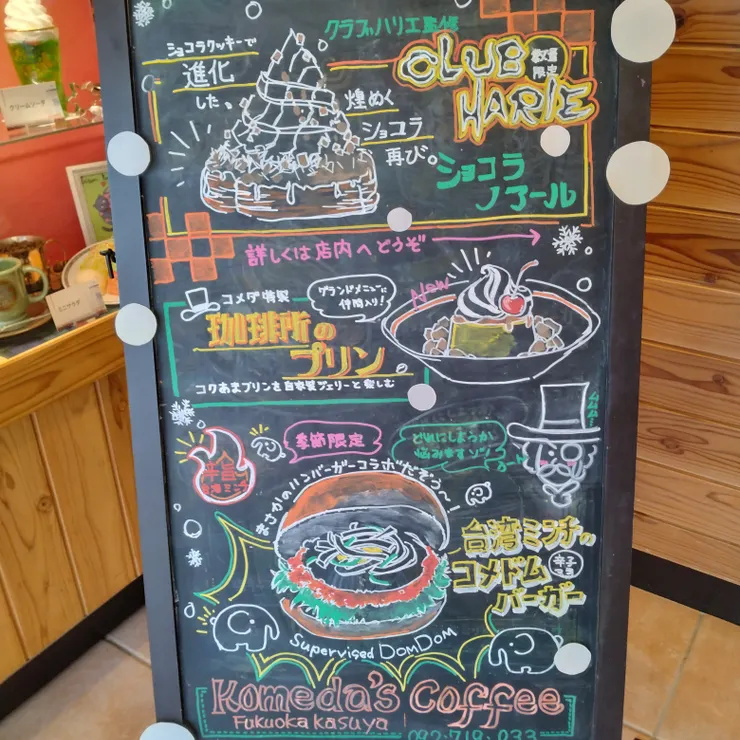 クラブハリエ監修
ショコラクッキーで
進化
した。
煌めく
ショコラ
再び。
CLUB
HARIE
数量
限定
ショコラ
ノアール
詳しくは店内へどうぞ
コメダ特製
グランドメニューに
仲間入り!
New
珈琲所の
プリン
コクあまプリンを自家製ジェリーと楽しむ
季節限定
どれにしようか
悩みますゾ
辛旨
台湾ミンチ
まさかのハンバーガーコラボだぞう〜!
台湾ミンチの
コメドム
バーガー
辛子
マヨ
Supervised DOMDOM
Komeda's Coffee
Fukuoka Kasuya
092.719.033
クリームソーダ